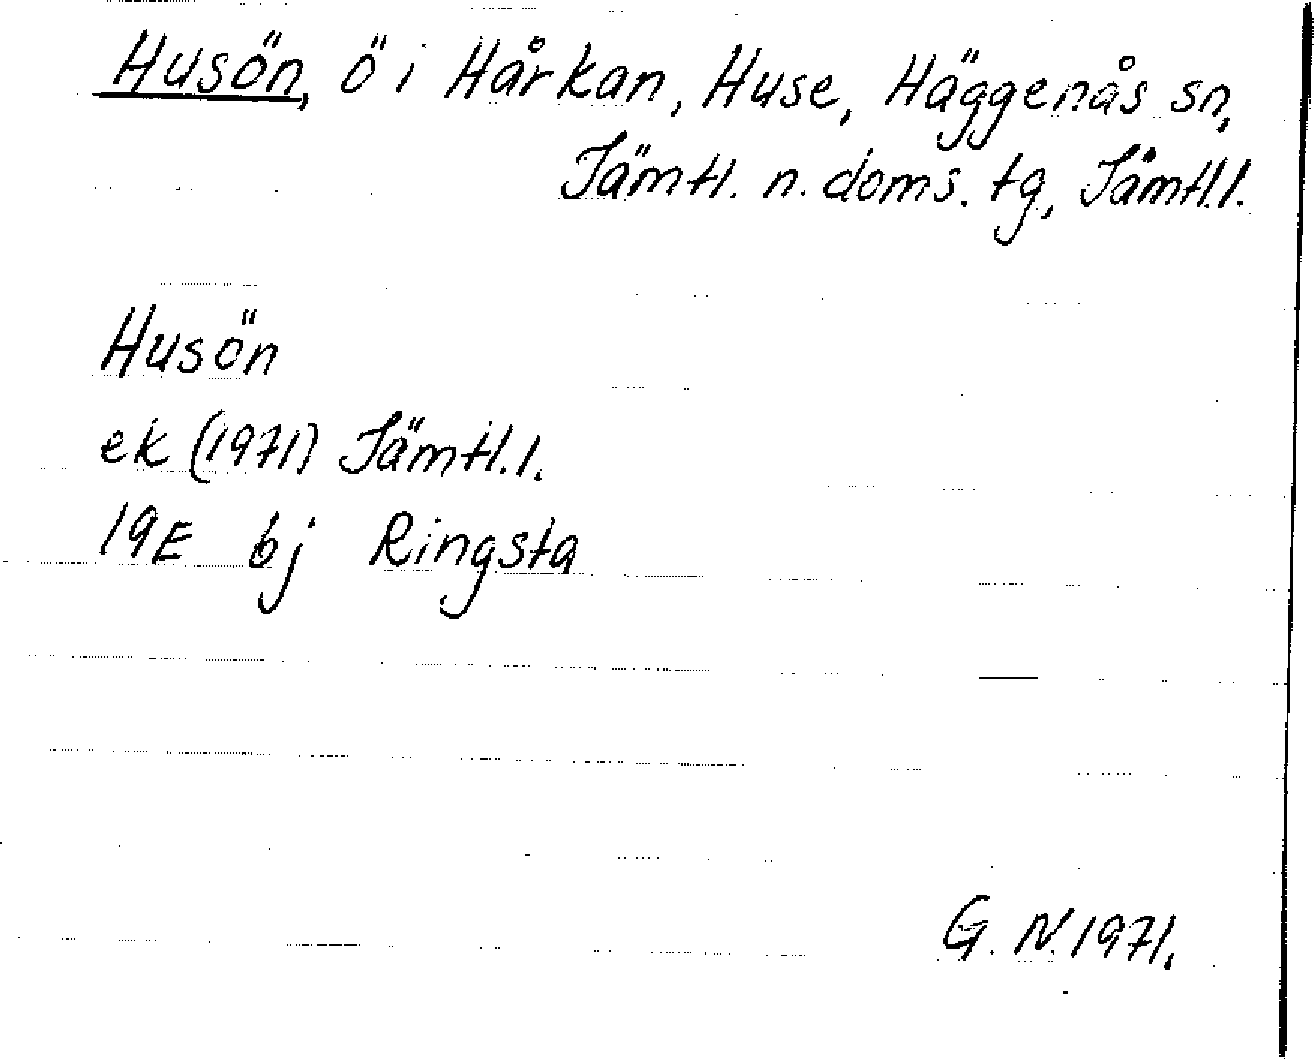 Husön, ö i Hårkan, Huse, Häggenås sn,
Jämtl. n. doms. tg, Jämtl.l.
Husön
ek (1971) Jämtl.l.
19E 6j Ringsta
G. N. 1971.